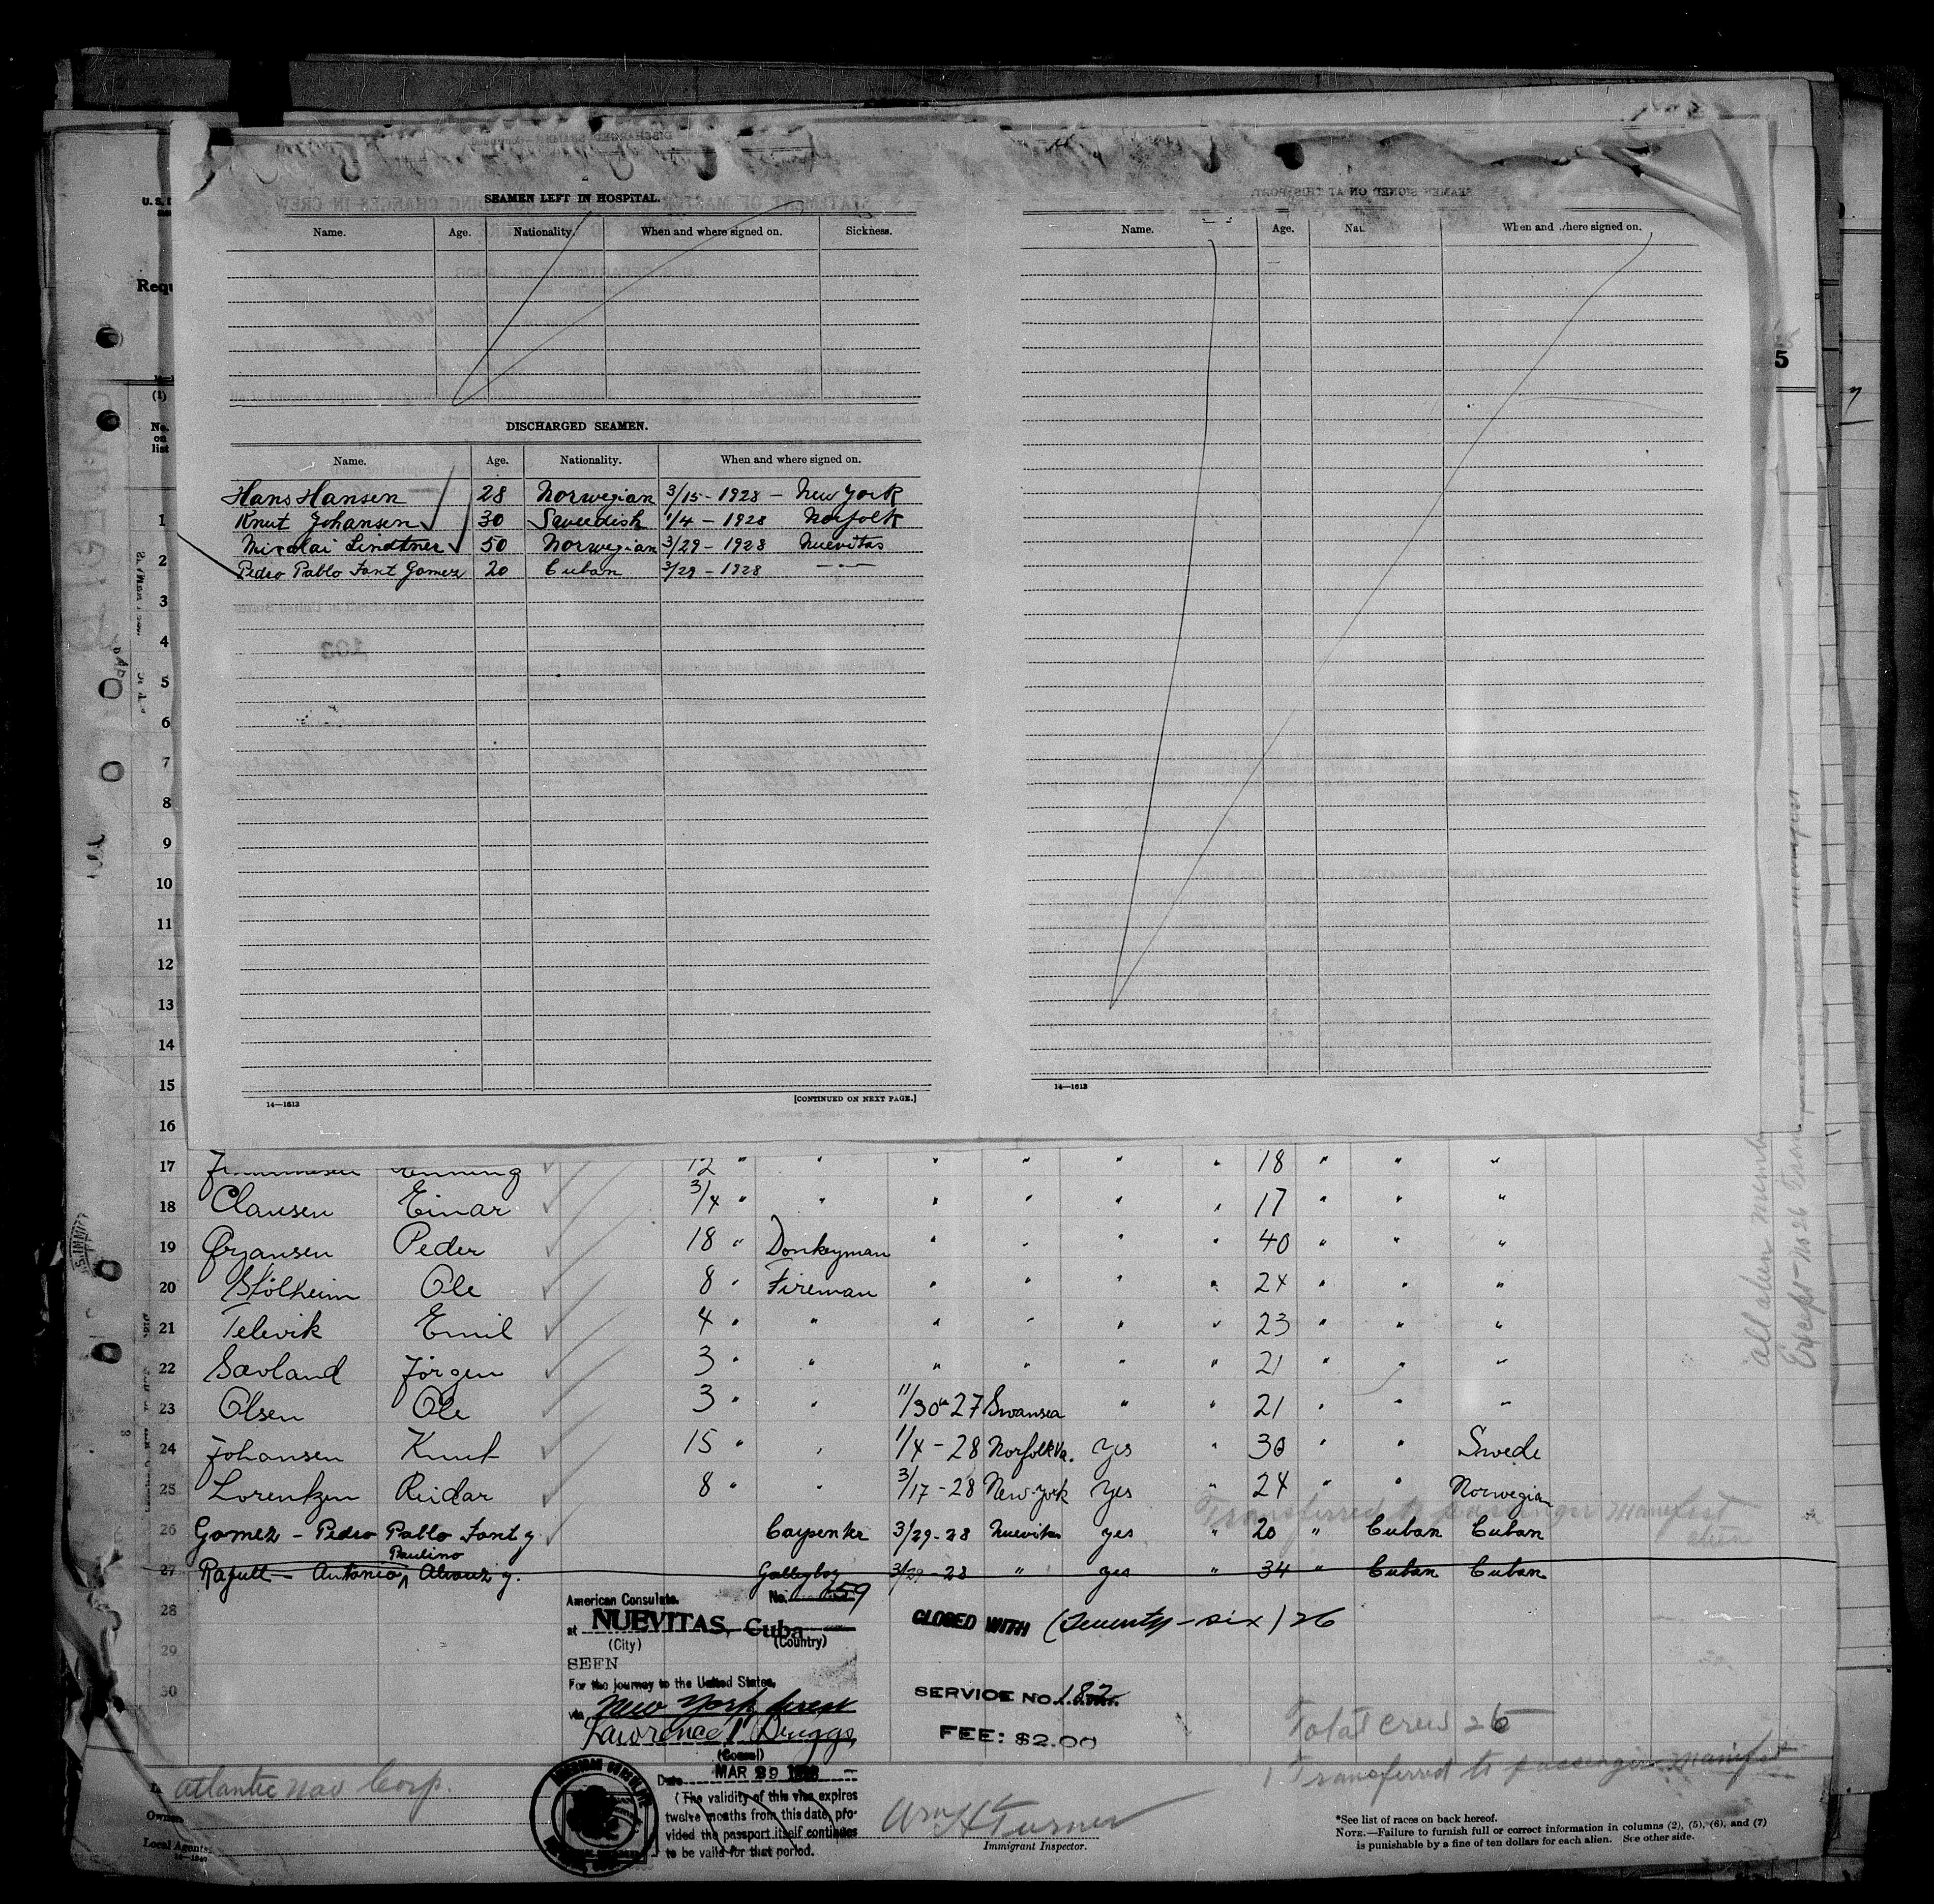 SEAMEN LEFT IN HOSPITAL.
Name. Age. Nationality. When and where signed on. Sickness.
DISCHARGED SEAMEN.
Name. Age. Nationality. When and where signed on.
Hans Hansen 28 Norwegian 3/15-1928 - New York
Knut Johansen 30 Sweedish 1/4-1928 Norfolk
Nicolai Lindtner 50 Norwegian 3/29-1928 Nuevitas
Pedro Pablo Font Gomez 20 Cuban 3/29-1928 —"—
14—1613 [CONTINUED ON NEXT PAGE.]
Name. Age. Nat When and where signed on.
14—1613
U. S.
Requ
5
(1)
No.
on
list
1
2
3
4
5
6
7
8
9
10
11
12
13
14
15
16
17 12 " " " " " " 18 " " "
18 Clausen Einar 3/4 " " " " " " 17 " " "
19 Ørjansen Peder 18 " Donkeyman " " " " 40 " " "
20 Stölheim Ole 8 " Fireman " " " " 24 " " "
21 Televik Emil 4 " " " " " " 23 " " "
22 Sævland Jörgen 3 " " " " " " 21 " " "
23 Olsen Ole 3 " " 11/30-27 Swansea " " 21 " " "
24 Johansen Knut 15 " " 1/4-28 Norfolk Va. yes " 30 " " Swede
25 Lorentzen Reidar 8 " " 3/17-28 New-York yes " 24 " " Norwegian
Transferred to passenger manifest
26 Gomez - Pedro Pablo Font y Carpenter 3/29-28 Nuevitas yes " 20 " Cuban Cuban
Paulino
27 Antonio Galleyboy 3/29-28 " yes " 34 " Cuban Cuban
28
29
30
American Consulate. No. 159
at NUEVITAS, Cuba
(City) (Country)
SEEN
For the journey to the United States,
via New York direct
(Consul)
Date MAR 29 1928
(The validity of this visa expires
twelve months from this date, pro-
vided the passport itself continues
to be valid for that period.
CLOSED WITH (Twenty-six) 26
SERVICE NO. 182
FEE: $2.00
Total crew 26
1 Transferred to passenger manifest
all alien
Except - No 26
Atlantic Nav Corp.
Owners
Local Agents
Wm H Turner
Immigrant Inspector.
*See list of races on back hereof.
NOTE.—Failure to furnish full or correct information in columns (2), (5), (6), and (7)
is punishable by a fine of ten dollars for each alien. See other side.